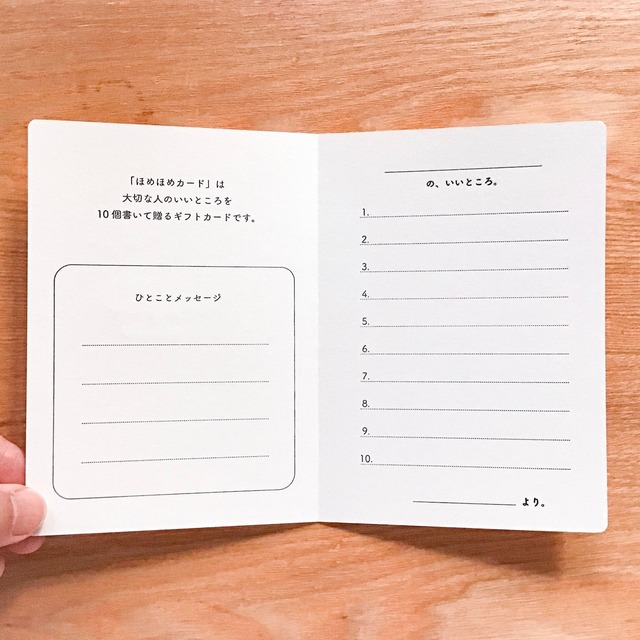 「ほめほめカード」は
大切な人のいいところを
10個書いて贈るギフトカードです。
ひとことメッセージ
の、いいところ。
1.
2.
3.
4.
5.
6.
7.
8.
9.
10.
より。